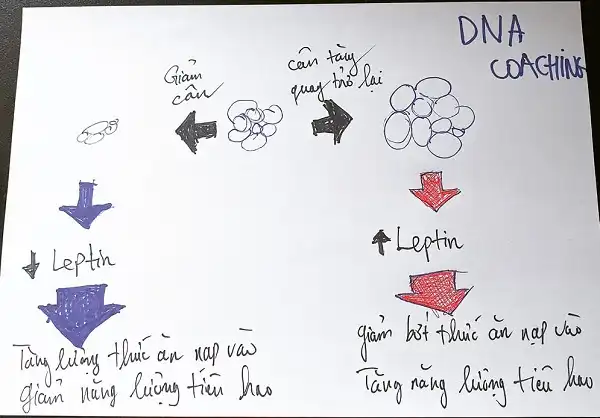 DNA
COACHING
Giảm
cân
cân tăng
quay trở lại
↓ Leptin
↑ Leptin
Tăng lượng thức ăn nạp vào
Giảm năng lượng tiêu hao
giảm bớt thức ăn nạp vào
Tăng năng lượng tiêu hao